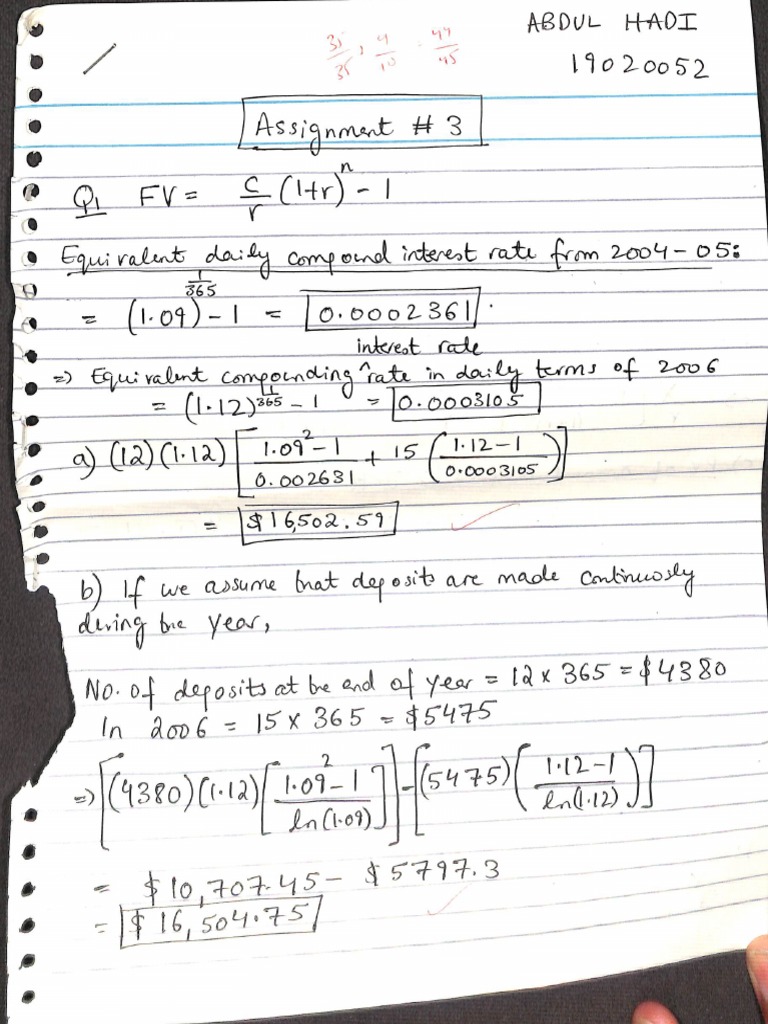 ABDUL HADI
35/35 + 9/10 = 44/45
19020052
Assignment # 3
Q1 FV = c/r (1+r)^n - 1
Equivalent daily compound interest rate from 2004-05:
= (1.09)^(1/365) - 1 = 0.0002361.
interest rate
=> Equivalent compounding ^ rate in daily terms of 2006
= (1.12)^(1/365) - 1 = 0.0003105
a) (12)(1.12) [ (1.09^2 - 1)/0.002631 + 15 ( (1.12 - 1)/0.0003105 ) ]
= $16,502.59 ✓
b) If we assume that deposits are made continuosly
during the year,
No. of deposits at the end of year = 12 x 365 = $4380
In 2006 = 15 x 365 = $5475
=> [(4380)(1.12) [ (1.09^2 - 1)/ln(1.09) ]] - [(5475) ( (1.12 - 1)/ln(1.12) )]
= $10,707.45 - $5797.3
= $16,504.75 ✓